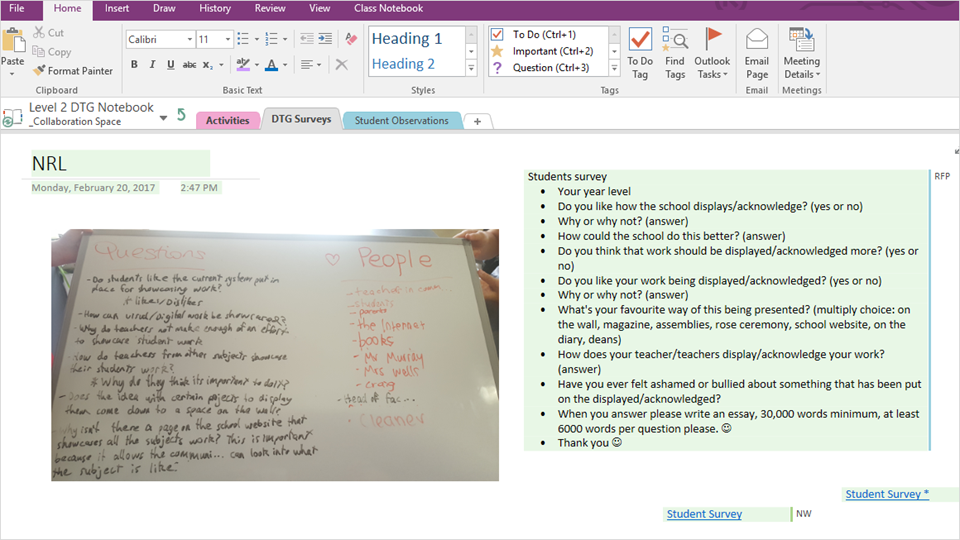 File Home Insert Draw History Review View Class Notebook
Paste
Cut
Copy
Format Painter
Clipboard
Calibri 11
B I U abc x₂ A
Basic Text
Heading 1
Heading 2
Styles
To Do (Ctrl+1)
Important (Ctrl+2)
? Question (Ctrl+3)
To Do Tag
Find Tags
Outlook Tasks
Tags
Email Page
Email
Meeting Details
Meetings
Level 2 DTG Notebook
_Collaboration Space
Activities DTG Surveys Student Observations +
NRL
Monday, February 20, 2017 2:47 PM
Questions
- Do students like the current system put in
place for showcasing work?
* likes/Dislikes
- How can visual/digital work be showcased?
- Why do teachers not make enough of an effort
to showcase student work
- How do teachers from other subjects showcase
their students work?
* Why do they think its important to do it?
- Does the idea with certain projects to display
them come down to a space on the walls
- Why isn't there a page on the school website that
showcases all the subjects work? This is important
because it allows the communi... can look into what
the subject is like
♡ People
- teachers in comm
- students
- parents
- the Internet
- books
- Mr Murray
- Mrs Wells
- Craig
- Head of Fac...
- Cleaner
Students survey
• Your year level
• Do you like how the school displays/acknowledge? (yes or no)
• Why or why not? (answer)
• How could the school do this better? (answer)
• Do you think that work should be displayed/acknowledged more? (yes or
no)
• Do you like your work being displayed/acknowledged? (yes or no)
• Why or why not? (answer)
• What's your favourite way of this being presented? (multiply choice: on
the wall, magazine, assemblies, rose ceremony, school website, on the
diary, deans)
• How does your teacher/teachers display/acknowledge your work?
(answer)
• Have you ever felt ashamed or bullied about something that has been put
on the displayed/acknowledged?
• When you answer please write an essay, 30,000 words minimum, at least
6000 words per question please. ☺
• Thank you ☺
RFP
Student Survey *
Student Survey
NW